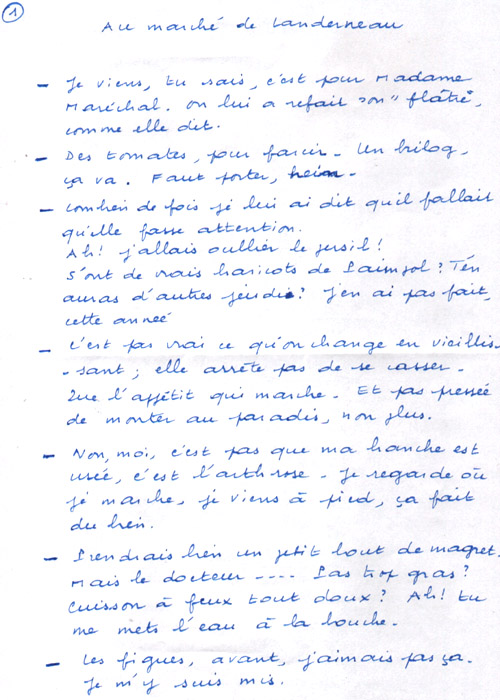 1
Au marché de Landerneau
- Je viens, tu sais, c'est pour Madame
Maréchal. On lui a refait son "flâtré",
comme elle dit.
- Des tomates, pour farcir - Un kilog,
ça va. Faut porter, hein -
- Combien de fois je lui ai dit qu'il fallait
qu'elle fasse attention.
Ah! j'allais oublier le persil!
S'ont de vrais haricots de Paimpol? T'en
auras d'autres jeudi? J'en ai pas fait,
cette année
- C'est pas vrai ce qu'on change en vieillis-
-sant; elle arrête pas de se casser -
Que l'appétit qui marche. Et pas pressée
de monter au paradis, non plus.
- Non, moi, c'est pas que ma hanche est
usée, c'est l'arthrose - Je regarde où
je marche, je viens à pied, ça fait
du bien.
- Prendrais bien un petit bout de magret.
Mais le docteur .... Pas trop gras?
Cuisson à feux tout doux? Ah! tu
me mets l'eau à la bouche -
- Les figues, avant, j'aimais pas ça.
Je m'y suis mis.